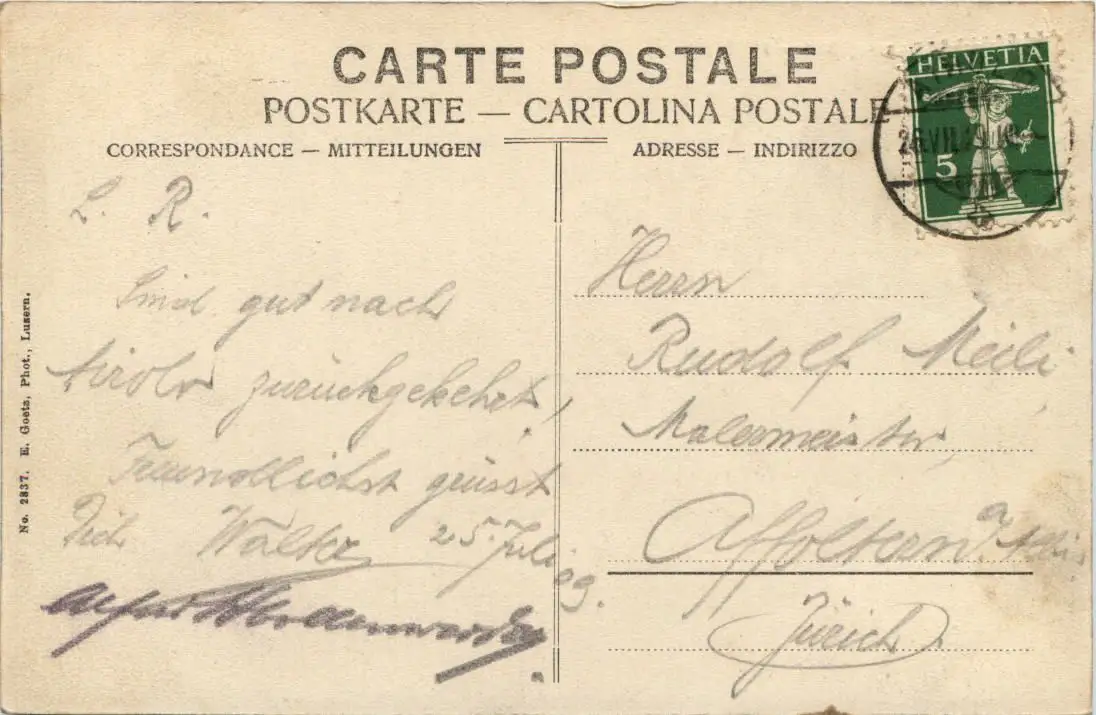 CARTE POSTALE
POSTKARTE — CARTOLINA POSTALE
CORRESPONDANCE — MITTEILUNGEN
ADRESSE — INDIRIZZO
HELVETIA
5
L. R.
Sind gut nach
zurückgekehrt,
Freundlichst grüsst
Dich Walter 25. Juli
09.
Alfred
Herrn
Rudolf Meili
Malermeister,
Affoltern a. Albis
Zürich
No. 2837. E. Goetz, Phot., Luzern.